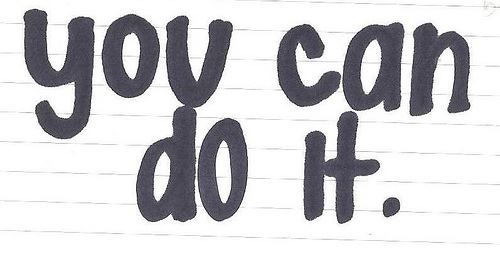 you can
do it.